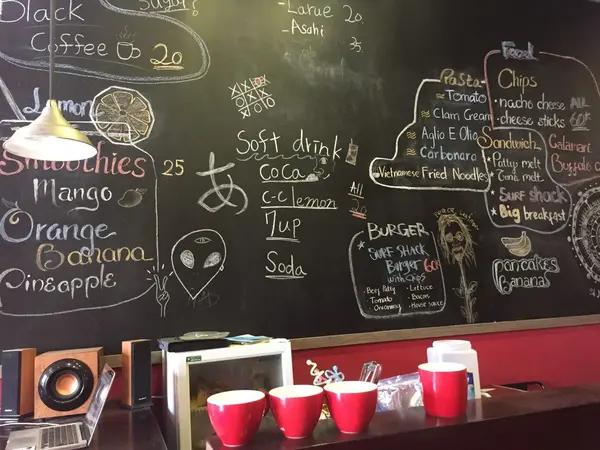 Black
Coffee 20
Sugar?
-Larue 20.
-Asahi 35
Lemon
Smoothies 25
Mango
Orange
Banana
Pineapple
あ
Soft drink
CoCa
C-C lemon
7up
Soda
All
20
BURGER
SURF SHACK
Burger 60k
with chips
Beef Patty
Tomato
Lettuce
Bacon
House sauce
Pasta
Tomato
Clam Cream
Aglio E Olio
Carbonara
Vietnamese Fried Noodles
Food
Chips
nacho cheese
cheese sticks
ALL
60k
Sandwich
Patty melt
Tuna melt
SURF SHACK
Big breakfast
Calamari
PANCAKES
BANANA